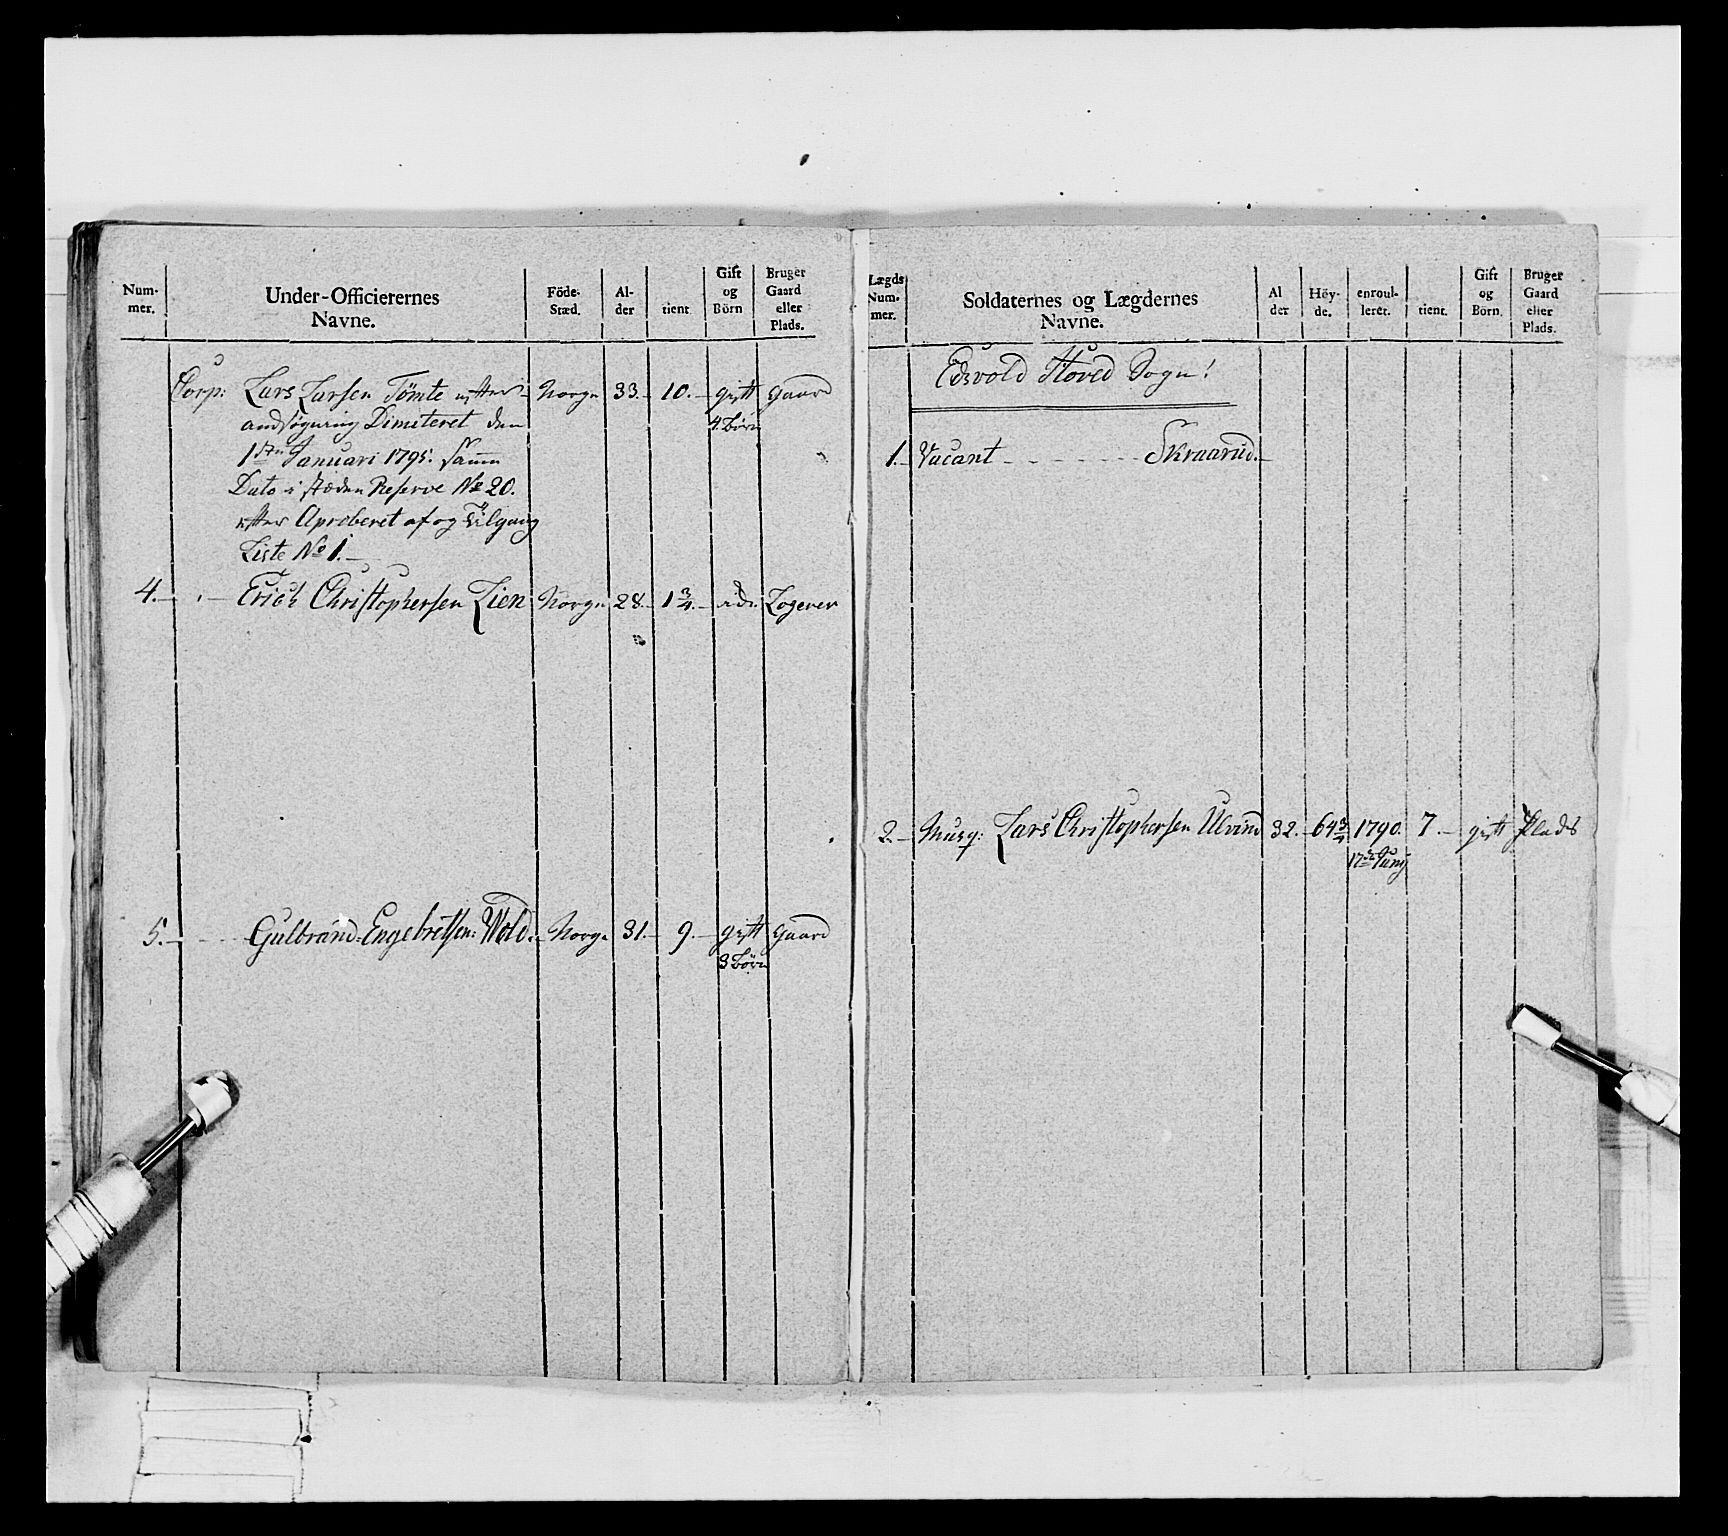 Num-
mer.
Under-Officierernes
Navne.
Föde-
Stæd.
Al-
der
tient
Gift
og
Börn
Bruger
Gaard
eller
Plads.
Corp: Lars Larsen Tömte efter Norge 33. 10. gift Gaard
andsøgning Dimiteret den 4 Börn
1ste Januari 1795. samme
Dato i stæden Reserve No 20.
efter Aproberet af og Tilgang
Liste No 1.
4. Erich Christophersen Lien Norge 28. 1 3/4. Logerer
5. Gulbrand Engebretsen Wold. Norge 31. 9. gift Gaard
3 Börn
Lægds
Num-
mer.
Soldaternes og Lægdernes
Navne.
Al
der
Höy-
de.
enroul-
leret.
tient.
Gift
og
Börn.
Bruger
Gaard
eller
Plads.
Edsvold Hoved Sogn!
1. Vacant Skraarud.
2. Musq: Lars Christophersen Ulvind 32. 64 3/4 1790. 7. gift Plads
17de Junij